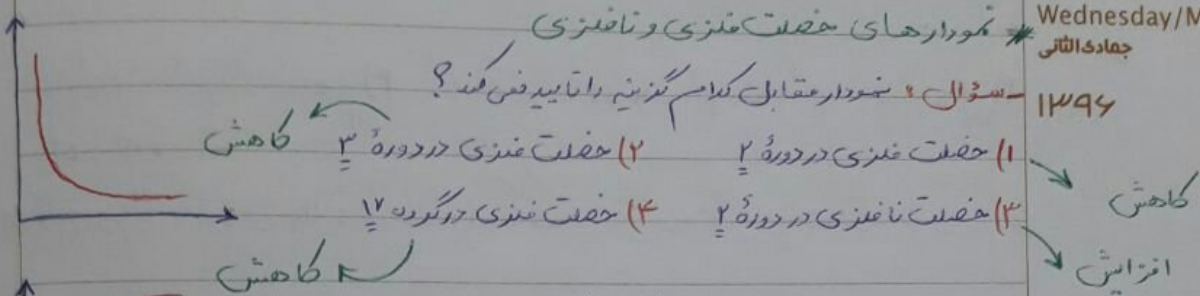 Wednesday/M
جمادی‌الثانی
۱۳۹۶
* نمودارهای خصلت فلزی و نافلزی
- سؤال: نمودار مقابل کدام گزینه را تایید نمی کند؟
۱) خصلت فلزی در دورهٔ ۲ ۲) خصلت فلزی در دورهٔ ۳ کاهش
کاهش
۳) خصلت نافلزی در دورهٔ ۲ ۴) خصلت فلزی در گروه ۱۷
افزایش
کاهش